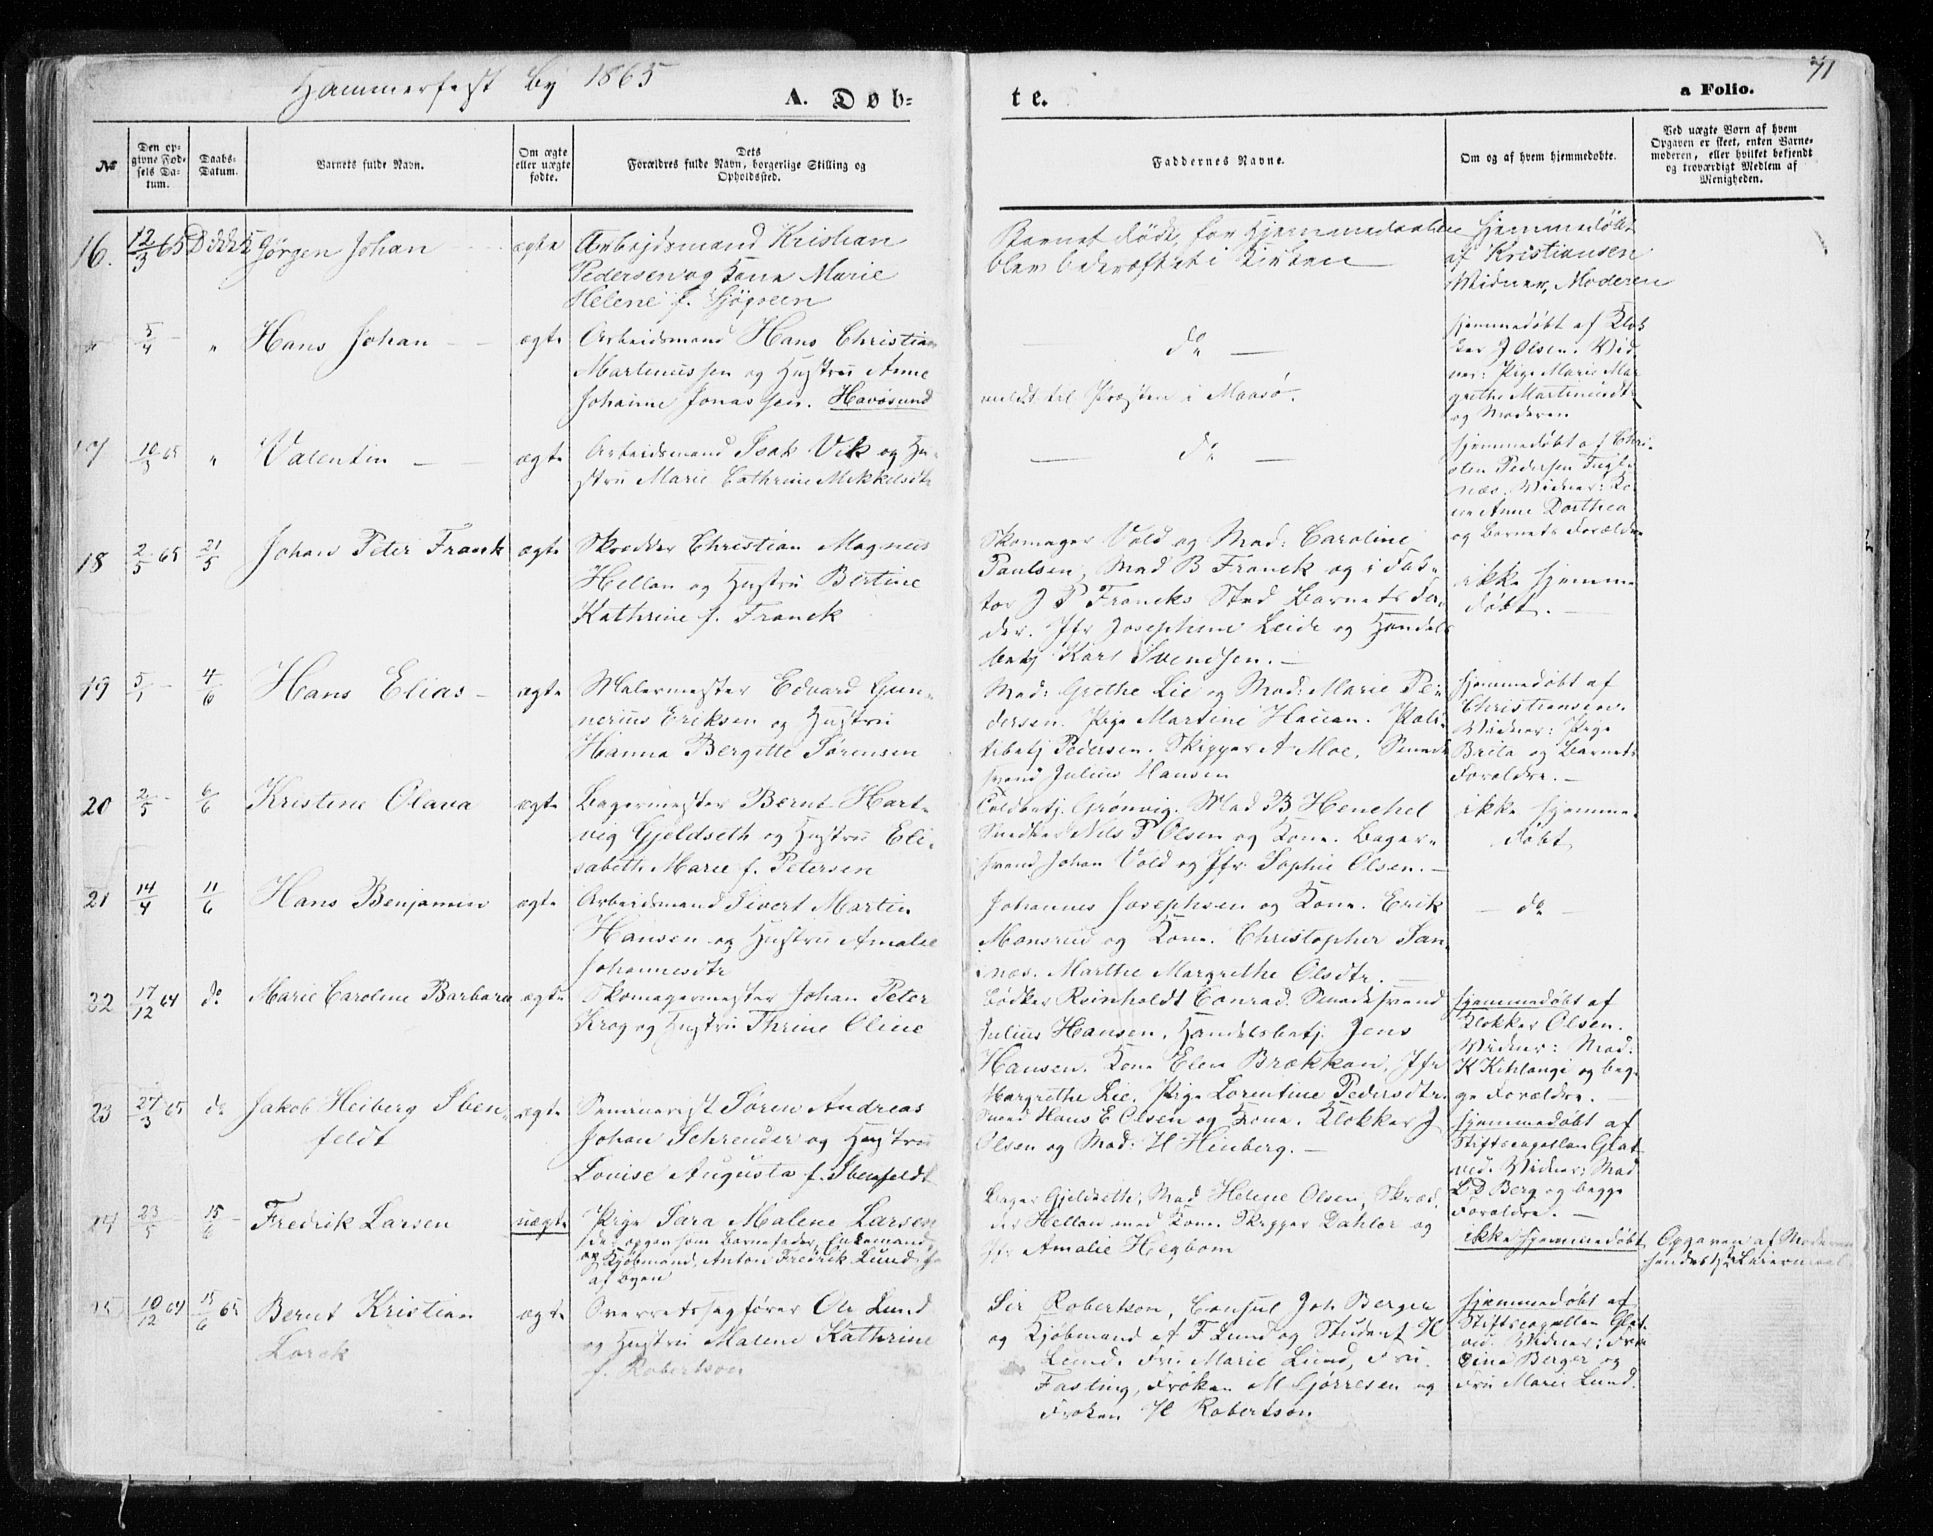 Hammerfest by 1865
A. Døb-
te.
71
a Folio.
№
Den op-
givne Fød-
sels Da-
tum.
Daabs-
Datum.
Barnets fulde Navn.
Om ægte
eller uægte
fødte.
Dets
Forældres fulde Navn, borgerlige Stilling og
Opholdssted.
Faddernes Navne.
Om og af hvem hjemmedøbte.
Ved uægte Born af hvem
Opgaven er skeet, enten Barne-
moderen, eller hvilket bekjendt
og troværdigt Medlem af
Menigheden.
16. 12/3 65 Jørgen Johan ægte
Arbeidsmand Kristian
Pedersen og Kone Marie
Helene f. Sjögreen
Barnet døde, før Hjemmedaaben
blev bekræftet i Kirken
Hjemmedøbt
af Kristiansen
Widner, Moderen
5/4 " Hans Johan ægte
Arbeidsmand Hans Christian
Martinussen og Hustru Anne
Johanne Jonassen. Havøsund
do
meldt til Præsten i Maasø.
hjemmedøbt af Klok
ker J Olsen. Wid
ner: Pige Marie Mar
grethe Martinusdtr
og Moderen
17 10/3 65 " Valentin ægte
Arbeidsmand Isak Vik og Hu-
stru Marie Cathrine Mikkelsdtr
do
hjemmedøbt af
Pedersen Fugle
næs. Widner: Ko
ne Anne Dorthea
og Barnets Forældre
18 2/5 65 21/5 Johan Peter Franck ægte
Skrædder Christian Magnus
Hellan og Hustru Birtine
Kathrine f. Franck
Skomager Vold og Mad: Caroline
Paulsen, Mad B Franck og i Fak-
tor J P Francks Sted Barnets Fa-
der. Jfr Josephine Leide og Handels
betj Karl Svendsen.
ikke hjemme
døbt.
19 5/1 - 4/6 Hans Elias ægte
Malermester Edvard Gun-
nerius Eriksen og Hustru
Hanna Bergitte Sørensen
Mad: Grethe Lie og Mad: Marie Pe-
dersen. Pige Martine Hauan. Poli-
tibetj Pedersen. Skipper A Moe. Smede
svend Julius Hansen
hjemmedøbt af
Christiansen.
Widner: Pige
Brita og Barnets
Forældre.
20 2/5 - 6/6 Kristine Olava ægte
Bagermester Bernt Hart-
vig Gjeldseth og Hustru Eli-
sabeth Marie f. Petersen
Toldbetj. Grønvig. Mad B Henchel
Snedker Nils P Olsen og Kone. Bager-
svend Johan Vold og Jfr. Sophie Olsen.
ikke hjemme-
døbt
21 14/4 11/6 Hans Benjamin ægte
Arbeidsmand Sivert Martin
Hansen og Hustru Amalie
Johannesdtr
Johannes Josephsen og Kone. Erik
Monsrud og Kone. Christopher San
næs. Marthe Margrethe Olsdtr.
do
22 17/12 64 do Marie Caroline Barbara ægte
Skomagermester Johan Peter
Krog og Hustru Thrine Oline
Bødker Reinholdt Conrad. Smedesvend
Julius Hansen. Handelsbetj. Jens
Hansen. Kone Elen Brækkan. Jfr
Margrethe Lie. Pige Lorentine Pedersdtr.
hjemmedøbt af
Klokker Olsen.
Widner: Mad:
K Kihlangi og beg-
ge Forældre.
23 27/3 65 do Jakob Heiberg Iben-
feldt ægte
Seminarist Søren Andreas
Johan Schrøuder og Hustru
Louise Augusta f. Ibenfeldt
Smed Hans E Olsen og Kone. Klokker J
Olsen og Mad: H Hinberg.
hjemmedøbt af
Stiftscapellan Glat
ved. Widner: Mad
L D Berg og begge
Forældre.
24 23/5 15/6 - Fredrik Larsen uægte
Pige Sara Malene Larsen
som Barnefader, Enkemand
og Kjøbmand, Anton Fredrik Lund
af byen
Bager Gjeldseth, Mad Helene Olsen, Skræd
der Hellan med Kone. Skipper Dahlor og
Jfr Amalie Hegbom
ikke hjemmedøbt
Opgaven af Moderen
25 10/12 64 15/6 65 Bernt Kristian
Lorck ægte
Overretssagfører Ole Lund
og Hustru Malene Kathrine
f. Robertson
Sir Robertson, Consul Joh Berger
og Kjøbmand A F Lund og Student H
Lund. Fru Marie Lund, Fru
Fasting, Frøken M Gjørresen og
Frøken H Robertson
hjemmedøbt af
Stiftscapellan Glat
ved. Widner: Fru
Sina Berger og
Fru Marie Lund.